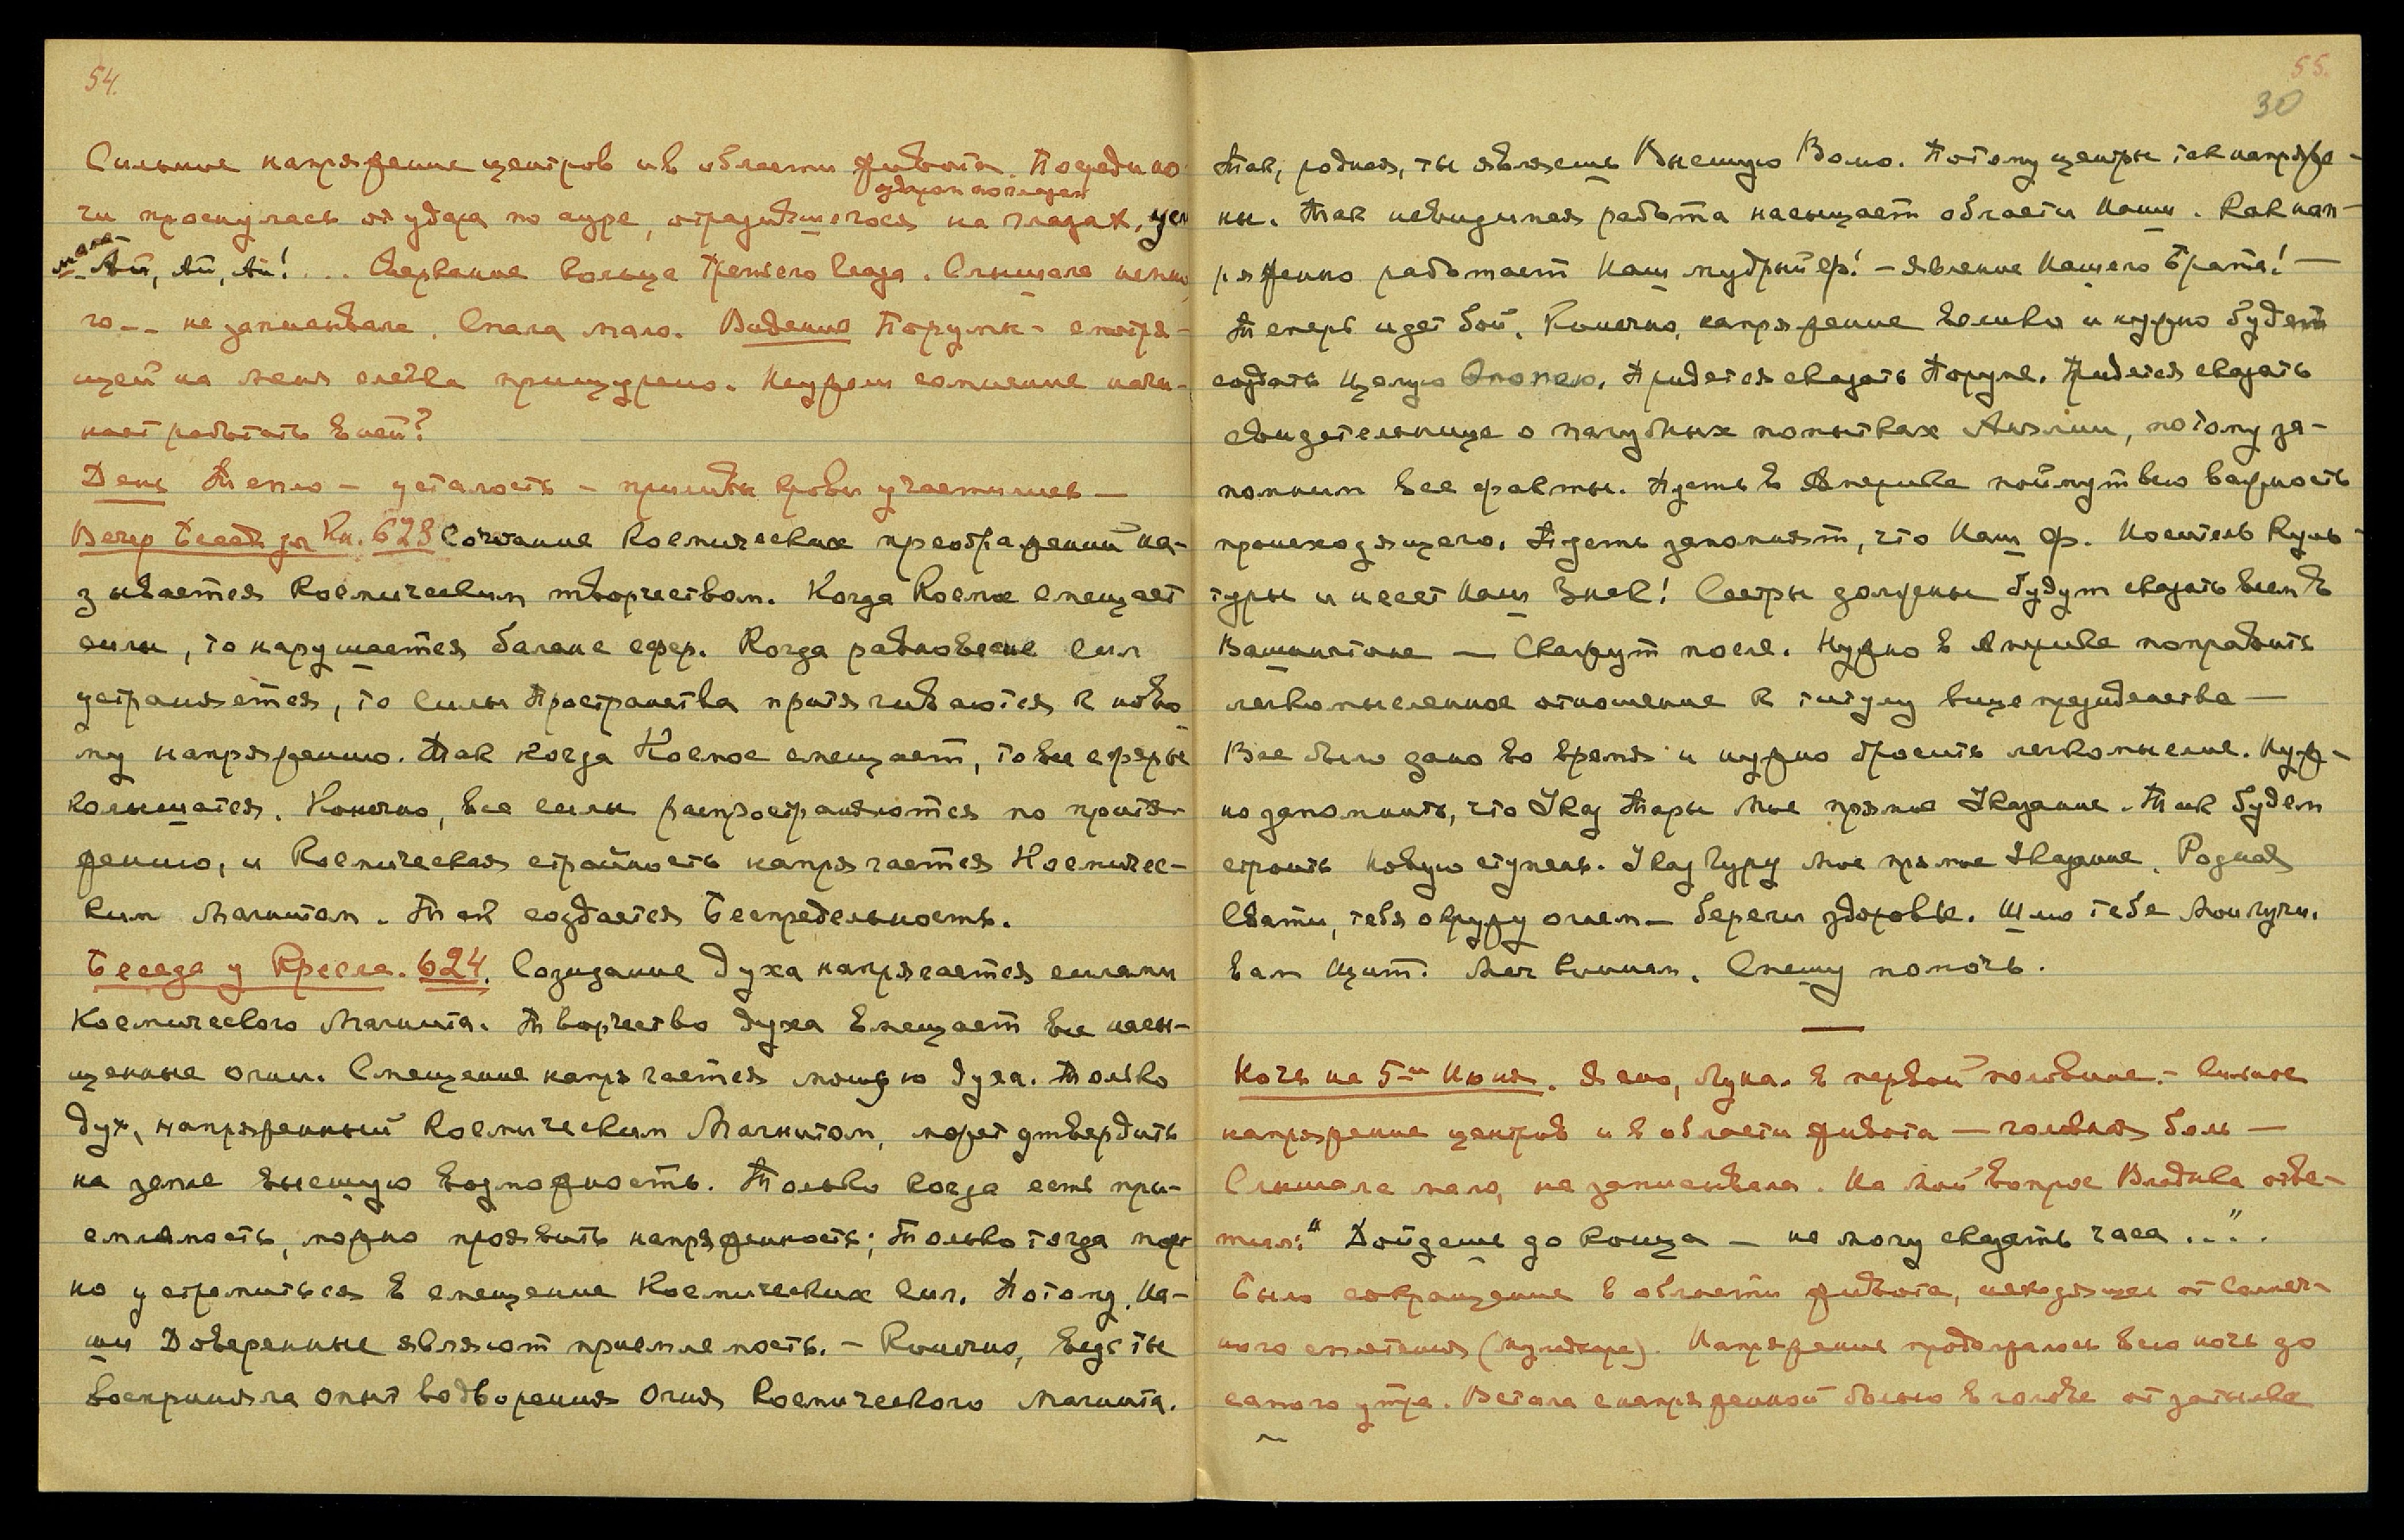 54.
Сильное напряжение центров и в области живота. Посреди но-
ударом по глазам
чи проснулась от удара по ауре, отразившегося на глазах,
Ай, Ай, Ай! ... Сверкание кольца Третьего Глаза. Слышала немно
го -- не записывала. Спала мало. Видение Порумы - смотря-
щей на меня слегка прищурено. Неужели сомнение начи-
нает работать в ней?
День Тепло - усталость - приливы крови участились -
Вечер Беседа за Кн. 623 Сочетание Космических преображений на-
зывается Космическим творчеством. Когда Космос смещает
силы, то нарушается баланс сфер. Когда равновесие сил
устраняется, то силы Пространства притягиваются к ново-
му напряжению. Так когда Космос смещает, то все сферы
колышатся. Конечно, все силы распространяются по притя-
жению, и Космическая стройность напрягается Космичес-
ким Магнитом. Так создается Беспредельность.
Беседа у Кресла. 624. Созидание духа напрягается силами
Космического Магнита. Творчество духа вмещает все насы-
щенные огни. Смещение напрягается мощью духа. Только
дух, напряженный Космическим Магнитом, может утвердить
на земле высшую возможность. Только когда есть при-
емлемость, можно проявить напряженность; Только тогда мож
но устремиться в смещение Космических сил. Потому, На-
ши Доверенные являют приемлемость. - Конечно, ведь ты
восприняла опыт водворения Огня Космического Магнита.
55.
30
Так, родная, ты являешь Высшую Волю. Потому центры так напряже-
ны. Так невидимая работа насыщает области Наши. Как нап-
ряженно работает Наш мудрый Ф.! - явление Нашего Брата! -
Теперь идет бой. Конечно, напряжение велико и нужно будет
создать целую Эпопею. Придется сказать Поруме. Придется сказать
свидетельнице о пагубных попытках Англии, потому за-
помним все факты. Пусть в Америке поймут всю важность
происходящего. Пусть запомнят, что Наш Ф. Носитель Куль-
туры и несет Наш Знак! Сестры должны будут сказать всем в
Вашингтоне - Скажут после. Нужно в Америке поправить
легкомысленное отношение к титулу вице президентства -
Все было дано во время и нужно бросить легкомыслие. Нуж-
но запомнить, что Указ Тары Мое прямое Указание. Так будем
строить Новую ступень. Указ Гуру Мое прямое Указание. Родная
Свати, тебя окружу огнем - береги здоровье. Шлю тебе Мои лучи.
Вам Щит. Меч
Спешу помочь.
Ночь на 5-ое Июня. Ясно, Луна. В первой половине. - Сильное
напряжение центров и в области живота - головная боль -
Слышала мало, не записывала. На мой вопрос Владыка отве-
тил: "Дойдешь до конца - не могу сказать часа ..."
Было сокращение в области живота, исходящее от Солнеч-
ного сплетения
Напряжение продолжалось всю ночь до
самого утра. Встала с напряженной болью в голове от затылка